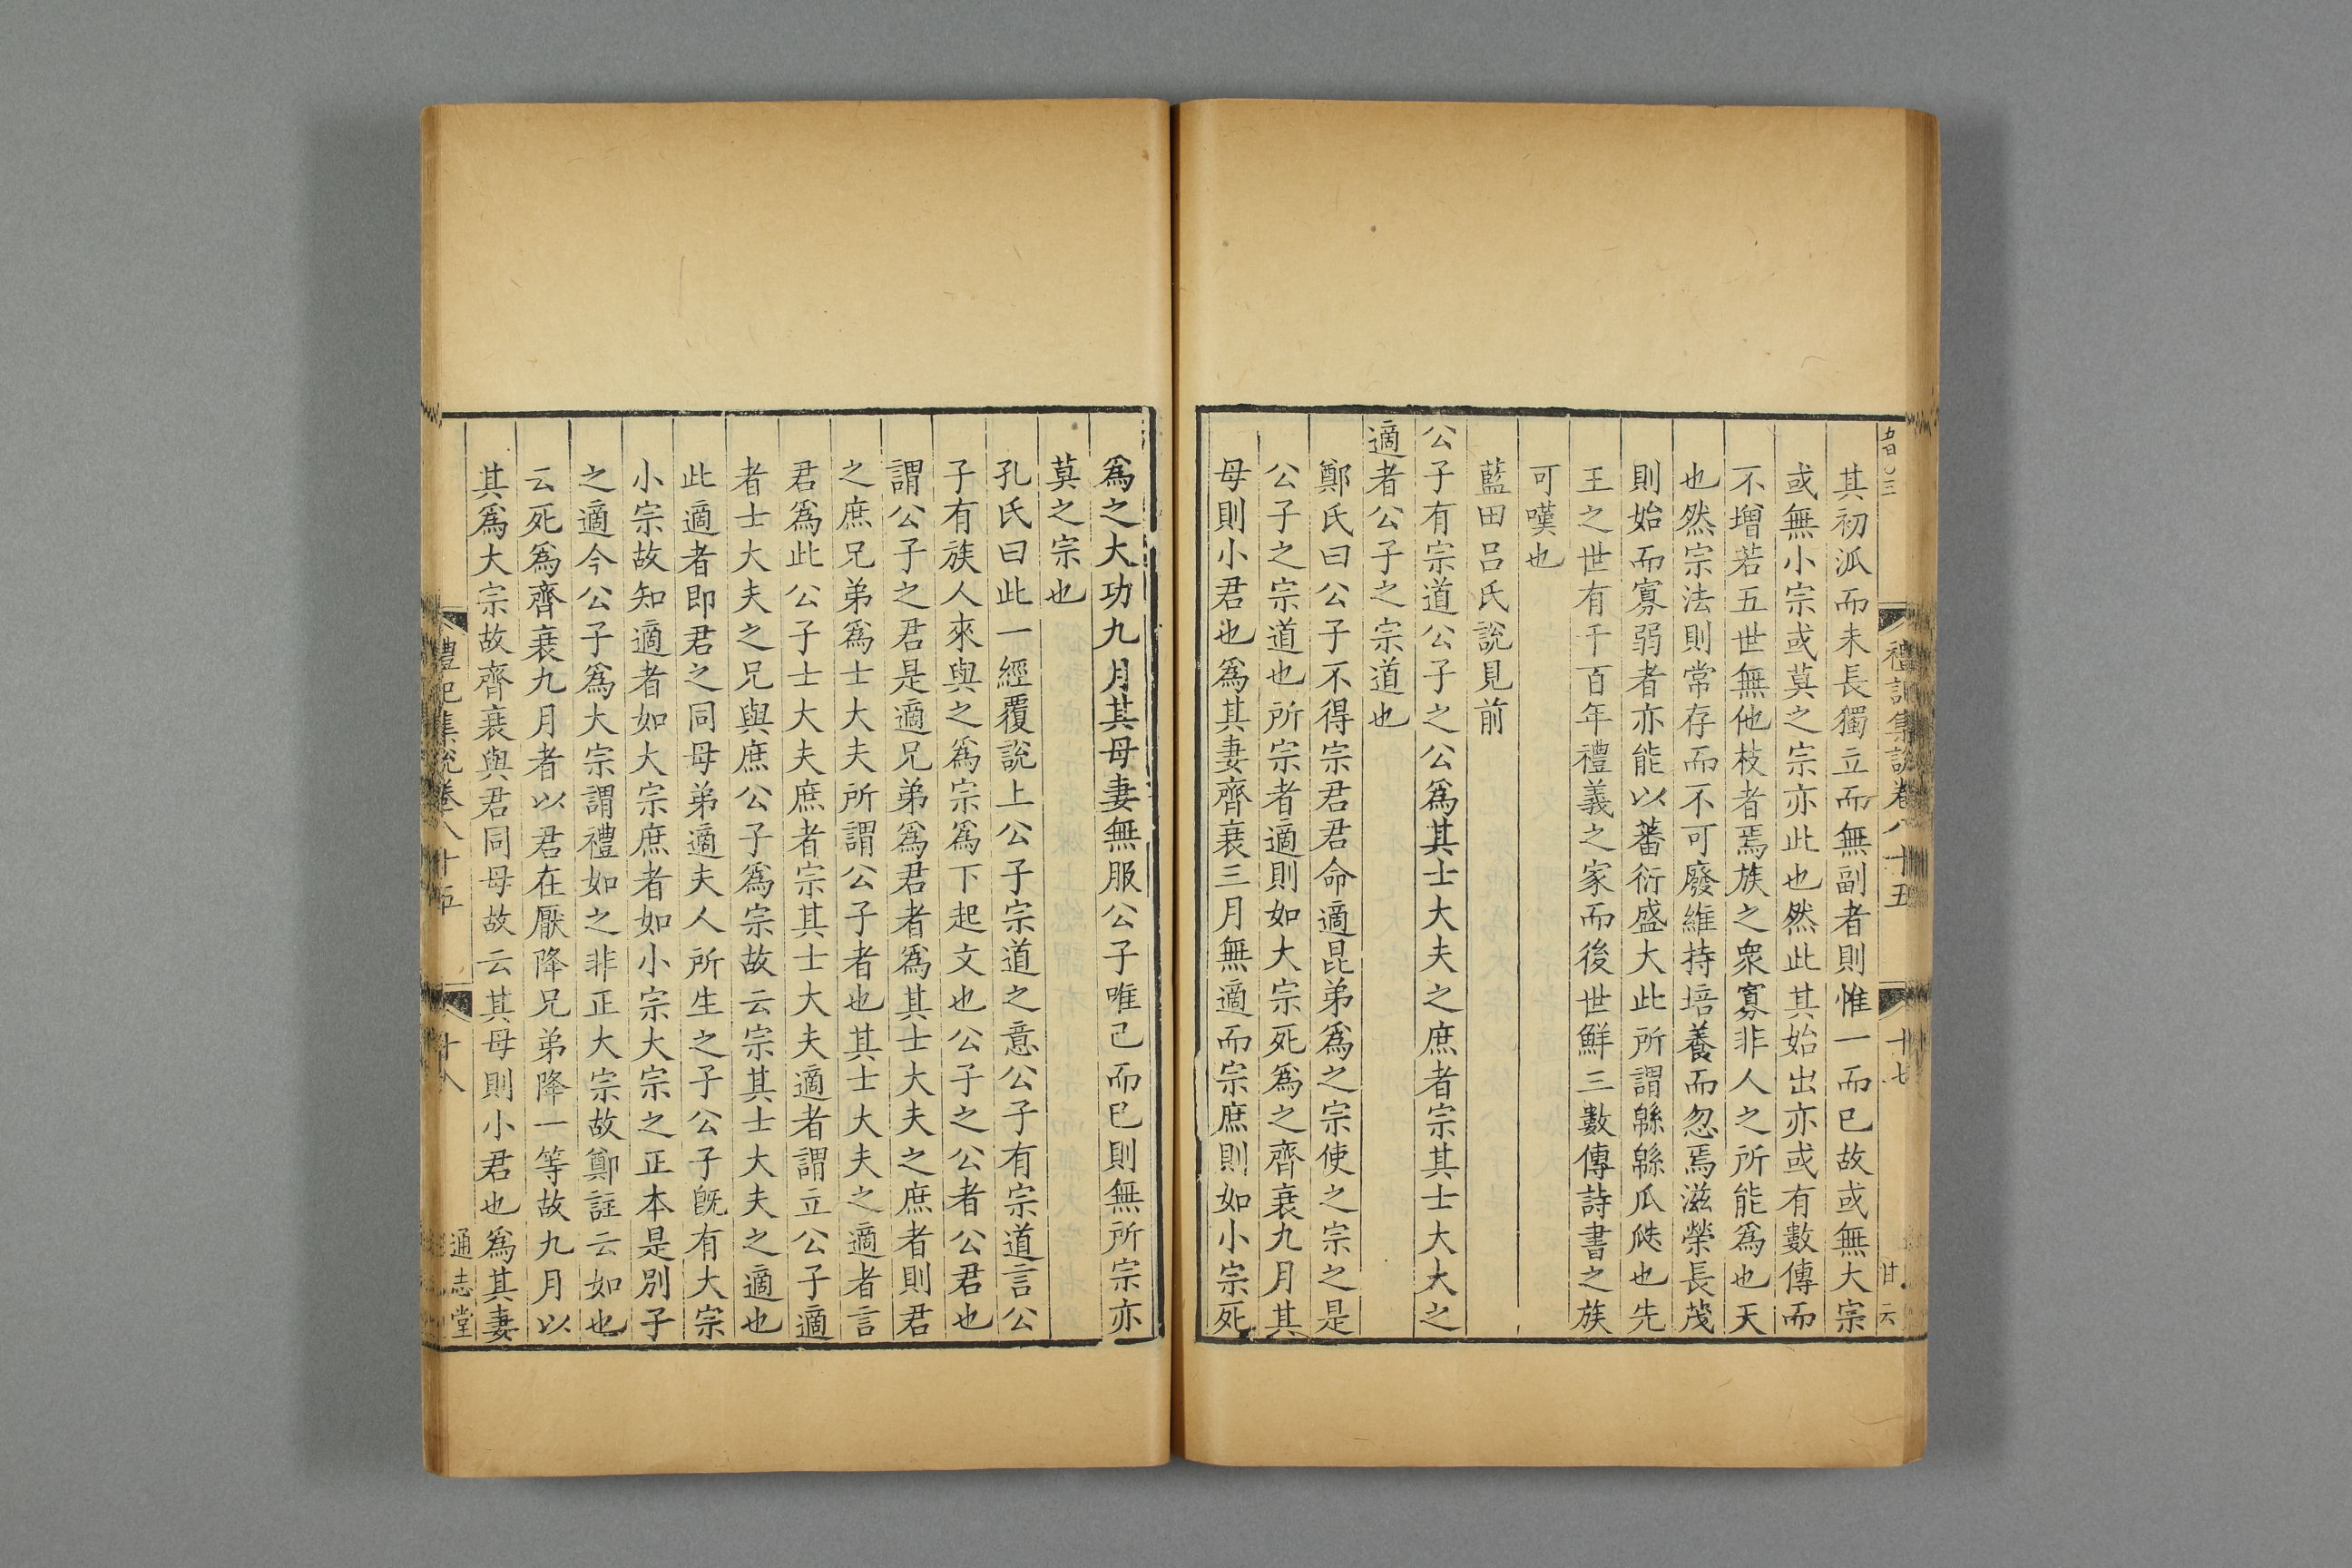 禮記集說卷八十五
十七
其初泒而未長獨立而無副者則惟一而已故或無大宗
或無小宗或莫之宗亦此也然此其始出亦或有數傳而
不增若五世無他枝者焉族之衆寡非人之所能爲也天
也然宗法則常存而不可廢維持培養而忽焉滋榮長茂
則始而寡弱者亦能以蕃衍盛大此所謂緜緜瓜瓞也先
王之世有千百年禮義之家而後世鮮三數傳詩書之族
可嘆也
藍田呂氏說見前
公子有宗道公子之公爲其士大夫之庶者宗其士大夫之
適者公子之宗道也
鄭氏曰公子不得宗君君命適昆弟爲之宗使之宗之是
公子之宗道也所宗者適則如大宗死爲之齊衰九月其
母則小君也爲其妻齊衰三月無適而宗庶則如小宗死
爲之大功九月其母妻無服公子唯己而已則無所宗亦
莫之宗也
孔氏曰此一經覆說上公子宗道之意公子有宗道言公
子有族人來與之爲宗爲下起文也公子之公者公君也
謂公子之君是適兄弟爲君者爲其士大夫之庶者則君
之庶兄弟爲士大夫所謂公子者也其士大夫之適者言
君爲此公子士大夫庶者宗其士大夫適者謂立公子適
者士大夫之兄與庶公子爲宗故云宗其士大夫之適也
此適者即君之同母弟適夫人所生之子公子旣有大宗
小宗故知適者如大宗庶者如小宗大宗之正本是別子
之適今公子爲大宗謂禮如之非正大宗故鄭註云如也
云死爲齊衰九月者以君在厭降兄弟降一等故九月以
其爲大宗故齊衰與君同母故云其母則小君也爲其妻
禮記集說卷八十五
十八
通志堂